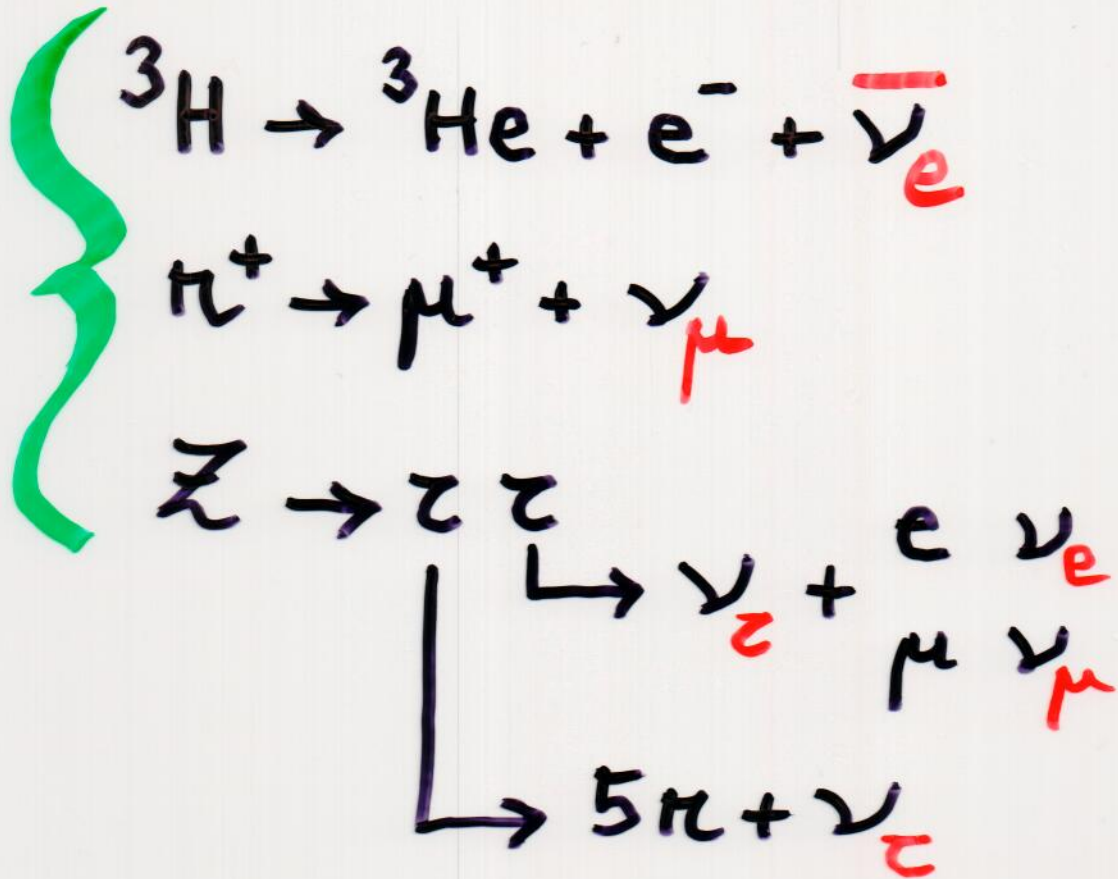 ³H → ³He + e⁻ + ν̅ₑ
π⁺ → μ⁺ + ν_μ
Z → τ τ
↳ ν_τ + e νₑ
μ ν_μ
↳ 5π + ν_τ